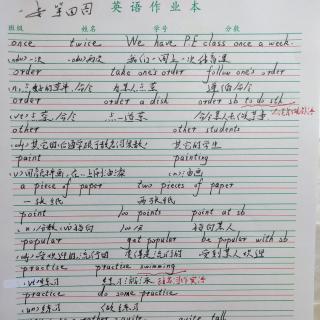 第四周 英语作业本
班级 姓名 学号 分数
once twice We have P.E class once a week.
(adv)一次 (adv)两次 我们一周上一次体育课
order take one's order follow one's order
n, 点好的菜,命令 为某人点菜 遵循命令
order order a dish order sb to do sth
(v)点菜,命令 点一道菜 命令某人去做某事
other other students
其它的学生
paint painting
(n)油画
a piece of paper two pieces of paper
一张纸 两张纸
point 100 points point at sb
100分 指向某人
popular get popular be popular with sb
adj 受欢迎的,流行的 变得流行的 受到某人欢迎
practise practise swimming
(v)练习 练习游泳
practise do some practise
(un)练习 做练习